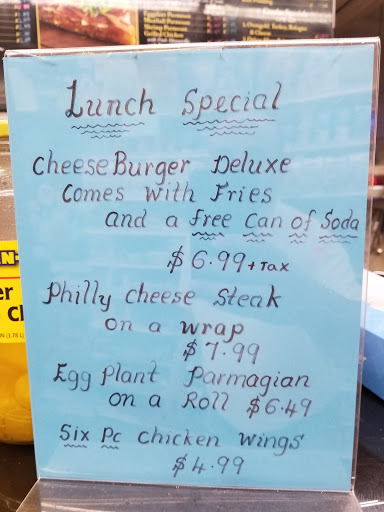 Lunch Special
Cheese Burger Deluxe
Comes with Fries
and a free Can of Soda
$6.99 + Tax
Philly cheese steak
on a wrap
$7.99
Egg Plant Parmagian
on a Roll $6.49
Six Pc chicken wings
$4.99